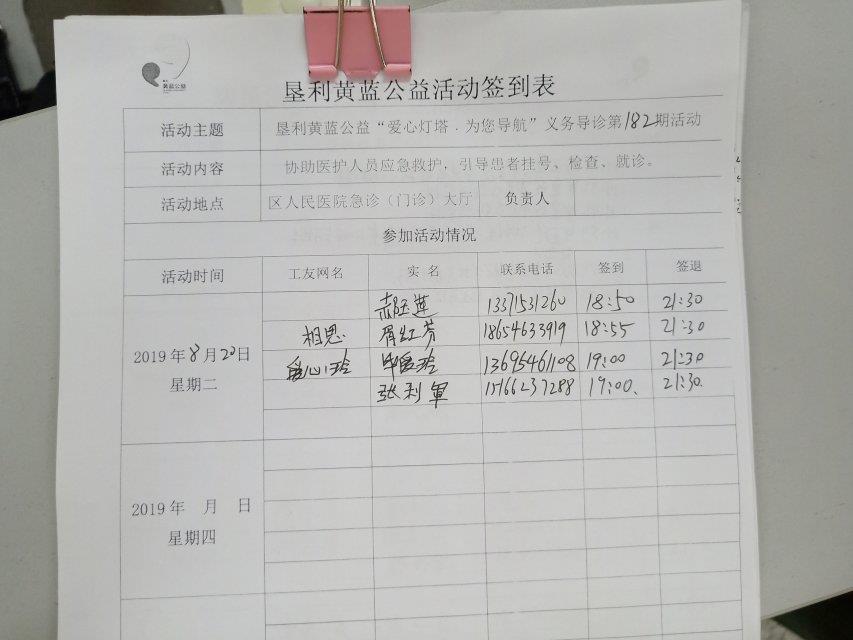 黄蓝公益
垦利黄蓝公益活动签到表
活动主题 垦利黄蓝公益“爱心灯塔.为您导航”义务导诊第182期活动
活动内容 协助医护人员应急救护，引导患者挂号、检查、就诊。
活动地点 区人民医院急诊（门诊）大厅 负责人
参加活动情况
活动时间 工友网名 实 名 联系电话 签到 签退
莲 13371531260 18:50 21:30
相思 胥红芳 18654633919 18:55 21:30
2019年8月20日
爱心玲 玲 13695461108 19:00 21:30
星期二
张利軍 15166237288 19:00. 21:30.
2019年 月 日
星期四